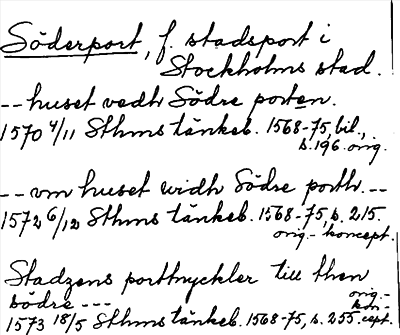 Söderport, f. stadsport i
Stockholms stad.
-- huset vedh Södre porten.
1570 4/11 Sthms tänkeb. 1568-75, bil.,
s. 196. orig.
-- vm huset widh Södre porth. --
1572 6/12 Sthms tänkeb. 1568-75, s. 215.
orig.- koncept.
Stadzens portnyckler till then
södre ---
1573 18/5 Sthms tänkeb. 1568-75, s. 255. orig.-
kon-
cept.